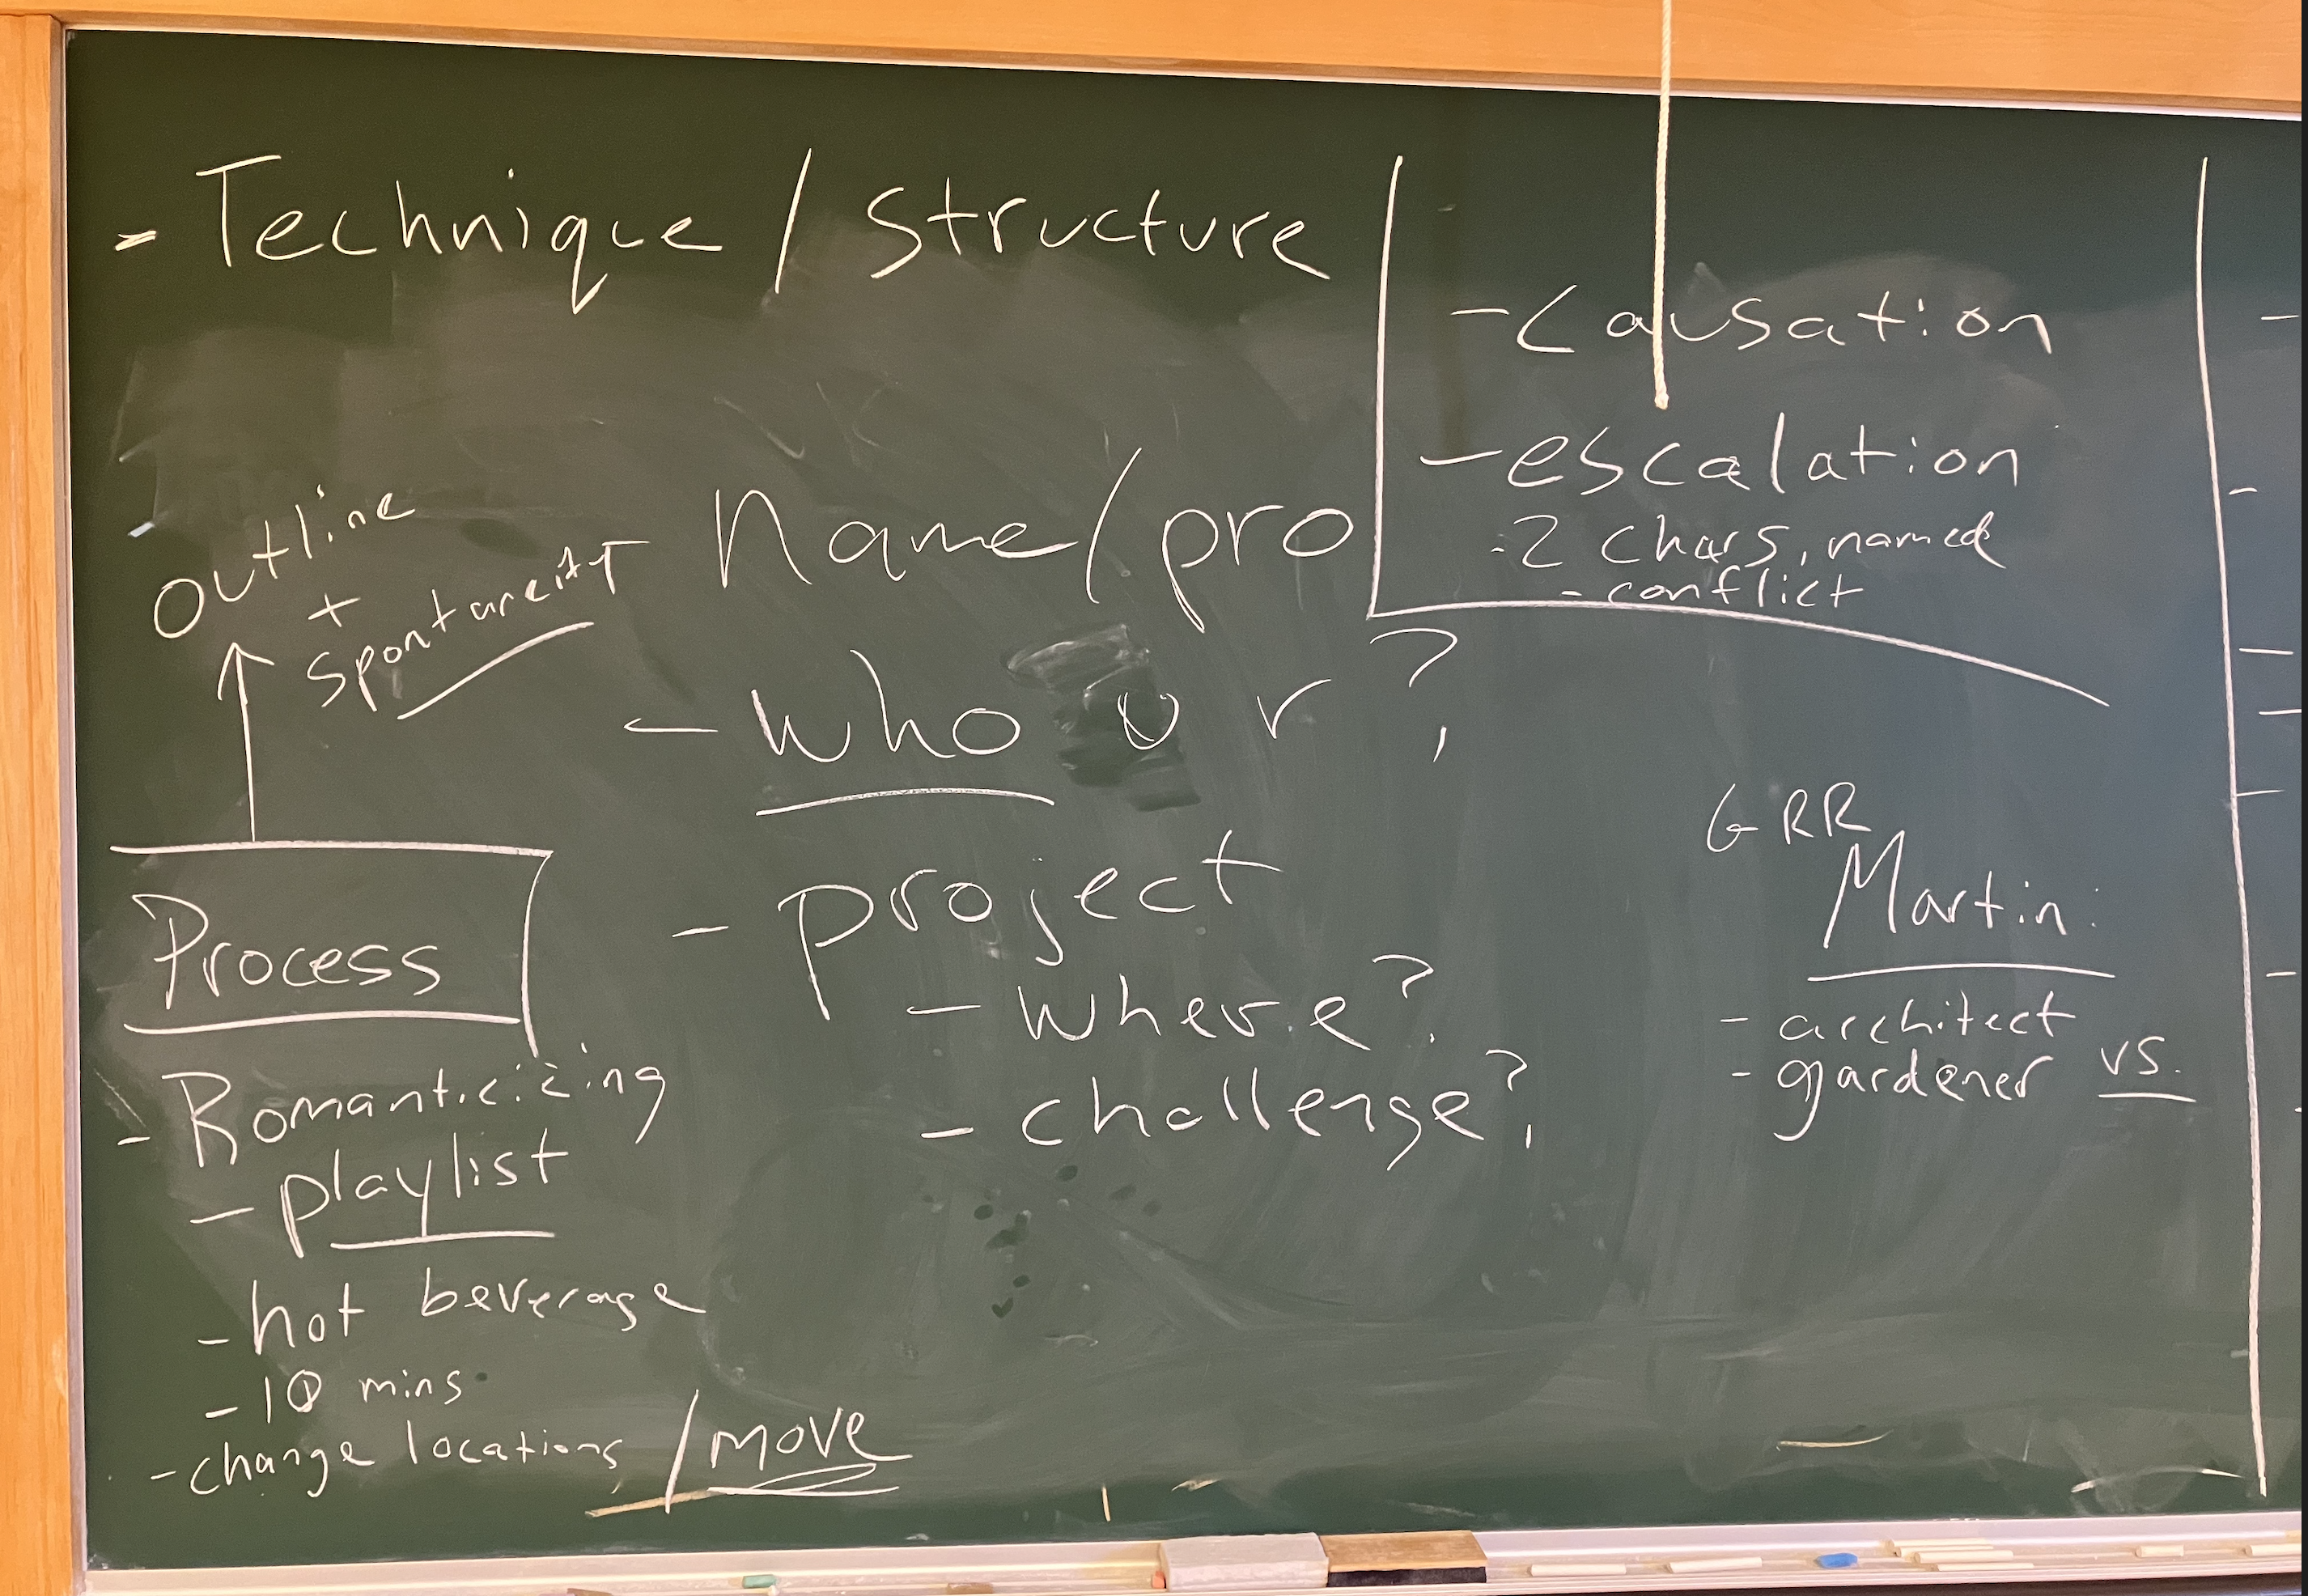 - Technique / Structure
- Causation
- escalation
- 2 chars, named
- conflict
Outline
+
spontaneity
name/pro
- who or?
- project
- where?
- challenge?
GRR
Martin:
- architect
- gardener vs.
Process
- Romanticizing
- playlist
- hot beverage
- 10 mins
- change locations / move